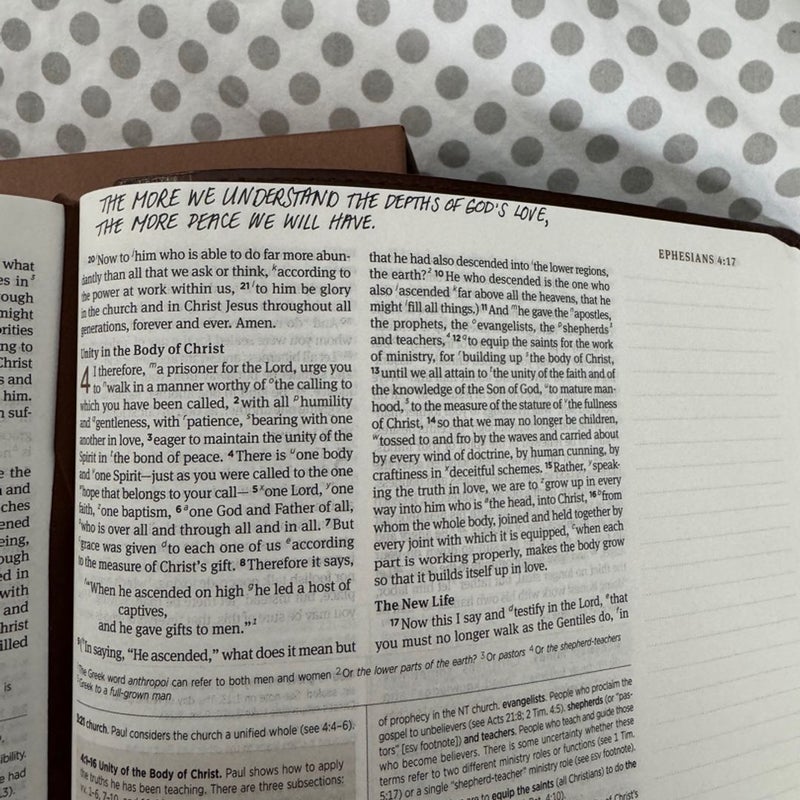 THE MORE WE UNDERSTAND THE DEPTHS OF GOD'S LOVE,
THE MORE PEACE WE WILL HAVE.
EPHESIANS 4:17
what
es in s
ough
might
orities
ng to
Christ
s and
him.
n suf-
e the
n and
ches
ened
eing,
ough
ed in
with
and
hrist
illed
is
ibility.
e had
.3).
20 Now to j him who is able to do far more abun-
dantly than all that we ask or think, k according to
the power at work within us, 21 l to him be glory
in the church and in Christ Jesus throughout all
generations, forever and ever. Amen.
Unity in the Body of Christ
4 I therefore, m a prisoner for the Lord, urge you
to n walk in a manner worthy of o the calling to
which you have been called, 2 with all p humility
and q gentleness, with r patience, s bearing with one
another in love, 3 eager to maintain the unity of the
Spirit in t the bond of peace. 4 There is u one body
and v one Spirit—just as you were called to the one
w hope that belongs to your call— 5 x one Lord, y one
faith, z one baptism, 6 a one God and Father of all,
b who is over all and through all and in all. 7 But
c grace was given d to each one of us e according
to the measure of Christ's gift. 8 Therefore it says,
f "When he ascended on high g he led a host of
captives,
and he gave gifts to men." 1
9 (h In saying, "He ascended," what does it mean but
that he had also descended into i the lower regions,
the earth? 2 10 He who descended is the one who
also j ascended k far above all the heavens, that he
might l fill all things.) 11 And m he gave the n apostles,
the prophets, the o evangelists, the p shepherds 3
and teachers, 4 12 q to equip the saints for the work
of ministry, for r building up s the body of Christ,
13 until we all attain to t the unity of the faith and of
the knowledge of the Son of God, u to mature man-
hood, 5 to the measure of the stature of v the fullness
of Christ, 14 so that we may no longer be children,
w tossed to and fro by the waves and carried about
by every wind of doctrine, by human cunning, by
craftiness in x deceitful schemes. 15 Rather, y speak-
ing the truth in love, we are to z grow up in every
way into him who is a the head, into Christ, 16 b from
whom the whole body, joined and held together by
every joint with which it is equipped, c when each
part is working properly, makes the body grow
so that it builds itself up in love.
The New Life
17 Now this I say and d testify in the Lord, e that
you must no longer walk as the Gentiles do, f in
The Greek word anthropoi can refer to both men and women 2 Or the lower parts of the earth? 3 Or pastors 4 Or the shepherd-teachers
5 Greek to a full-grown man
3:21 church. Paul considers the church a unified whole (see 4:4–6).
4:1–16 Unity of the Body of Christ. Paul shows how to apply
the truths he has been teaching. There are three subsections:
vv. 1–6, 7–10,
of prophecy in the NT church. evangelists. People who proclaim the
gospel to unbelievers (see Acts 21:8; 2 Tim. 4:5). shepherds (or "pas-
tors" [ESV footnote]) and teachers. People who teach and guide those
who become believers. There is some uncertainty whether these
terms refer to two different ministry roles or functions (see 1 Tim.
5:17) or a single "shepherd-teacher" ministry role (see ESV footnote).
to equip the saints (all Christians) to do the
4:10).